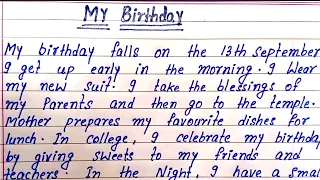 My Birthday
My birthday falls on the 13th September
I get up early in the morning. I Wear
my new suit. I take the blessings of
my Parents and then go to the temple.
Mother prepares my favourite dishes for
lunch. In college, I celebrate my birthday
by giving sweets to my friends and
teachers. In the Night, I have a small